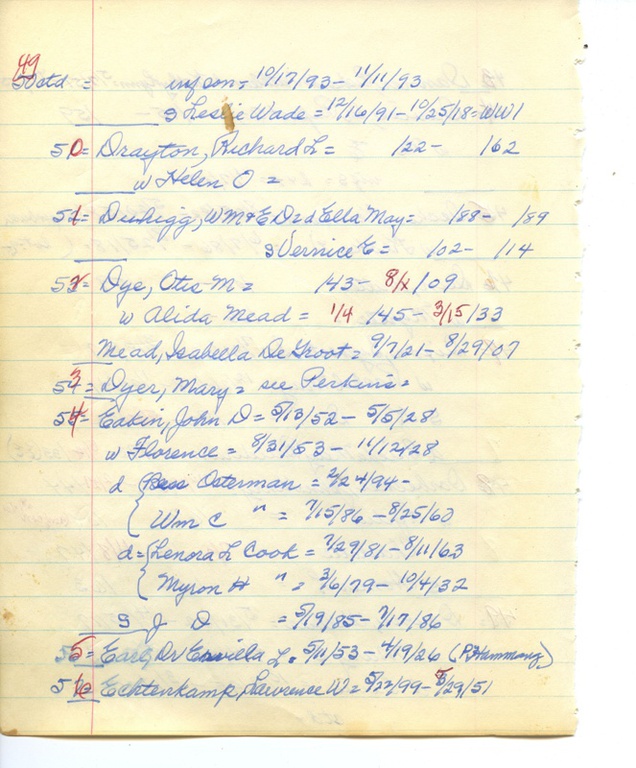 49
50 ctd = inf son = 10/17/93 - 11/11/93
s Leslie Wade = 12/16/91 - 10/25/18 = WW1
50 = Drayton, Richard L = /22 - /62
w Helen O =
51 = Duhigg, WM & E D = d Ella May = /88 - /89
s Vernice E = /02 - /14
52 = Dye, Otis M = /43 - 8/1/09
w Alida Mead = 1/4 /45 - 3/15/33
Mead, Isabella De Groot = 9/7/21 - 8/29/07
53 = Dyer, Mary = see Perkins =
54 = Eakin, John D = 5/13/52 - 5/5/28
w Florence = 8/31/53 - 11/12/28
d { Bess Osterman = 2/24/94 -
{ Wm C " = 7/15/86 - 8/25/60
d = { Lenora L Cook = 7/29/81 - 8/11/63
{ Myron H " = 3/6/79 - 10/4/32
s J D = 5/19/85 - 7/17/86
55 = Earl, Dr Ervilla L = 5/11/53 - 4/19/26 (P. Hammang)
56 = Echtenkamp, Lawrence W = 5/22/99 - 5/29/51